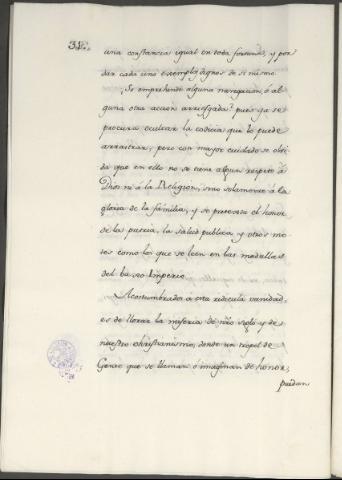 una constancia igual en toda fortuna, y por
dar cada uno exemplos dignos de si mismo.
¿Se emprehende alguna navegacion, ó al
guna otra accion arriesgada? pues ya se
procura ocultar la codicia que lo puede
arrastrar, pero con mayor cuidado se olvi
da que en ello no se tiene algun respeto á
Dios ni á la Religion, sino solamente á la
gloria de la familia, y se pretexta el honor
de la patria, la salud publica, y otros mo
tes como los que se leen en las medallas
del baxo Imperio.
Acostumbrados a esta ridicula vanidad,
es de llorar la miseria de nro siglo y de
nuestro christianismo, donde un tropel de
Gente que se llaman ó imaginan de honor,
puedan